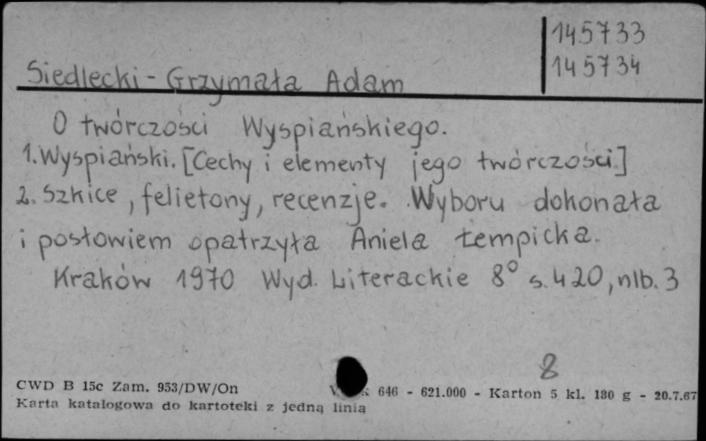 145733
145734
Siedlecki - Grzymała Adam
O twórczości Wyspiańskiego.
1. Wyspiański. [Cechy i elementy jego twórczości]
2. Szkice, felietony, recenzje. Wyboru dokonała
i posłowiem opatrzyła Aniela Łempicka.
Kraków 1970 Wyd. Literackie 8° s. 420, nlb. 3
8
CWD B 15c Zam. 953/DW/On 646 - 621.000 - Karton 5 kl. 180 g - 20.7.67
Karta katalogowa do kartoteki z jedną linią